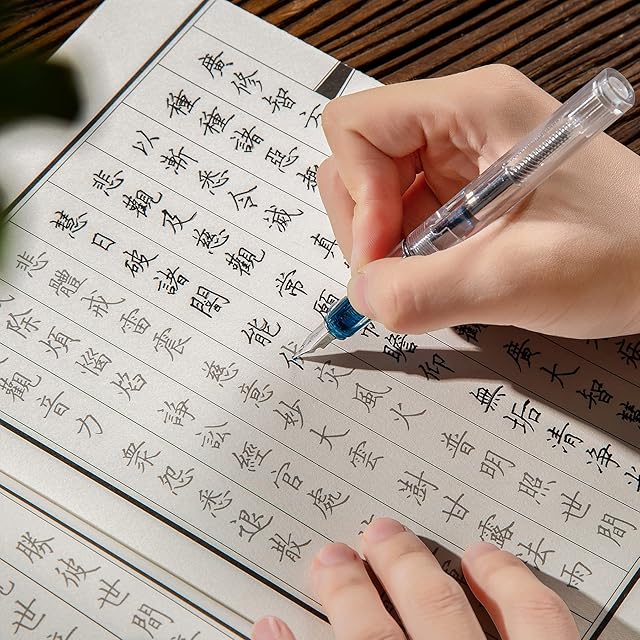 廣修智
種種諸惡
以漸悉令滅 真 廣大智慧
悲觀及慈觀 常願 瞻仰 無垢清淨
慧日破諸闇 能伏災風火 普明照世間
悲體戒雷震 慈意妙大雲 澍甘露法雨
除煩惱焰 諍訟經官處
觀音力 眾怨悉退散
勝彼世間
世間